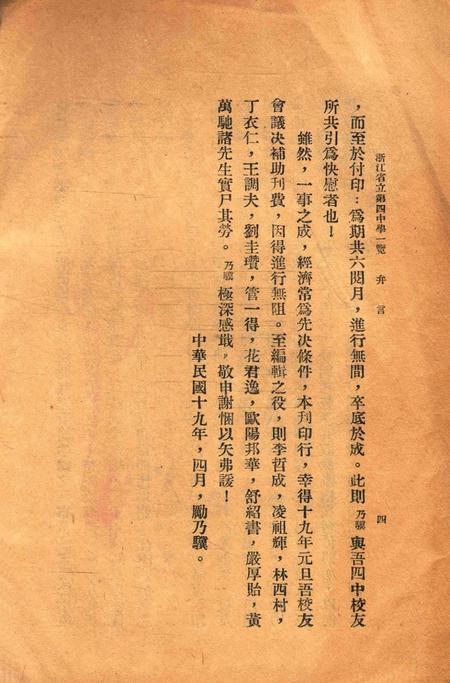 浙江省立第四中學一覽 弁言 四
，而至於付印：爲期共六閱月，進行無間，卒底於成。此則乃驥與吾四中校友
所共引爲快慰者也！
雖然，一事之成，經濟常爲先决條件，本刊印行，幸得十九年元旦吾校友
會議决補助刊費，因得進行無阻。至編輯之役，則李哲成，凌祖輝，林西村，
丁衣仁，王調夫，劉圭瓚，管一得，花君逸，歐陽邦華，舒紹書，嚴厚貽，黃
萬馳諸先生實尸其勞。乃驥極深感戢，敬申謝悃以矢弗諼！
中華民國十九年，四月，勵乃驥。